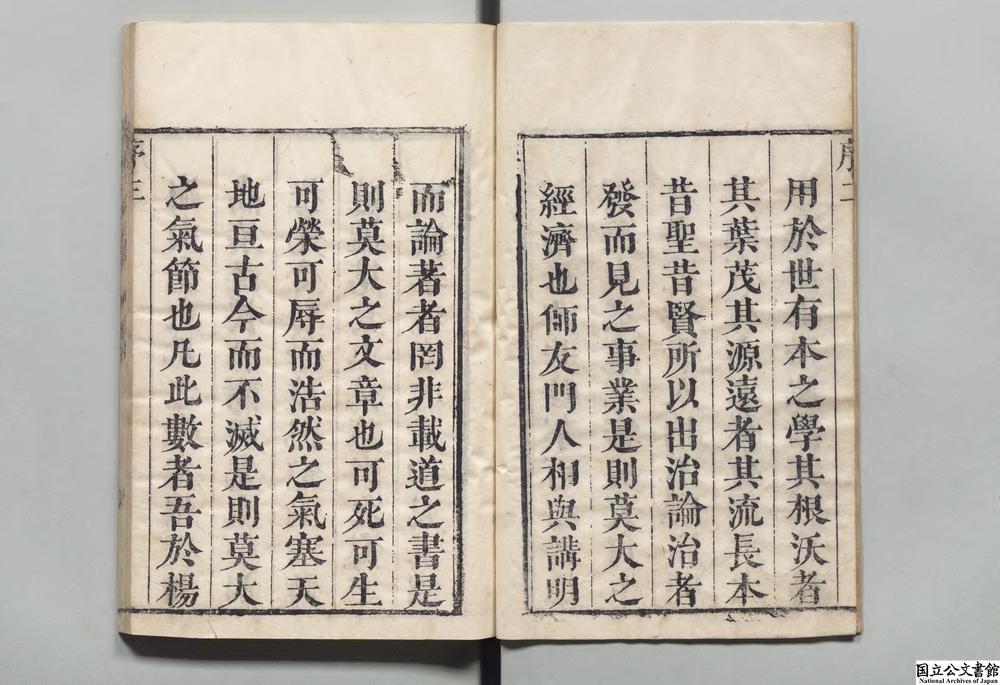 序二
用於世有本之學其根沃者
其葉茂其源遠者其流長本
昔聖昔賢所以出治論治者
發而見之事業是則莫大之
經濟也師友門人相與講明
而論著者罔非載道之書是
則莫大之文章也可死可生
可榮可辱而浩然之氣塞天
地亘古今而不滅是則莫大
之氣節也凡此數者吾於楊
序三
国立公文書館
National Archives of Japan